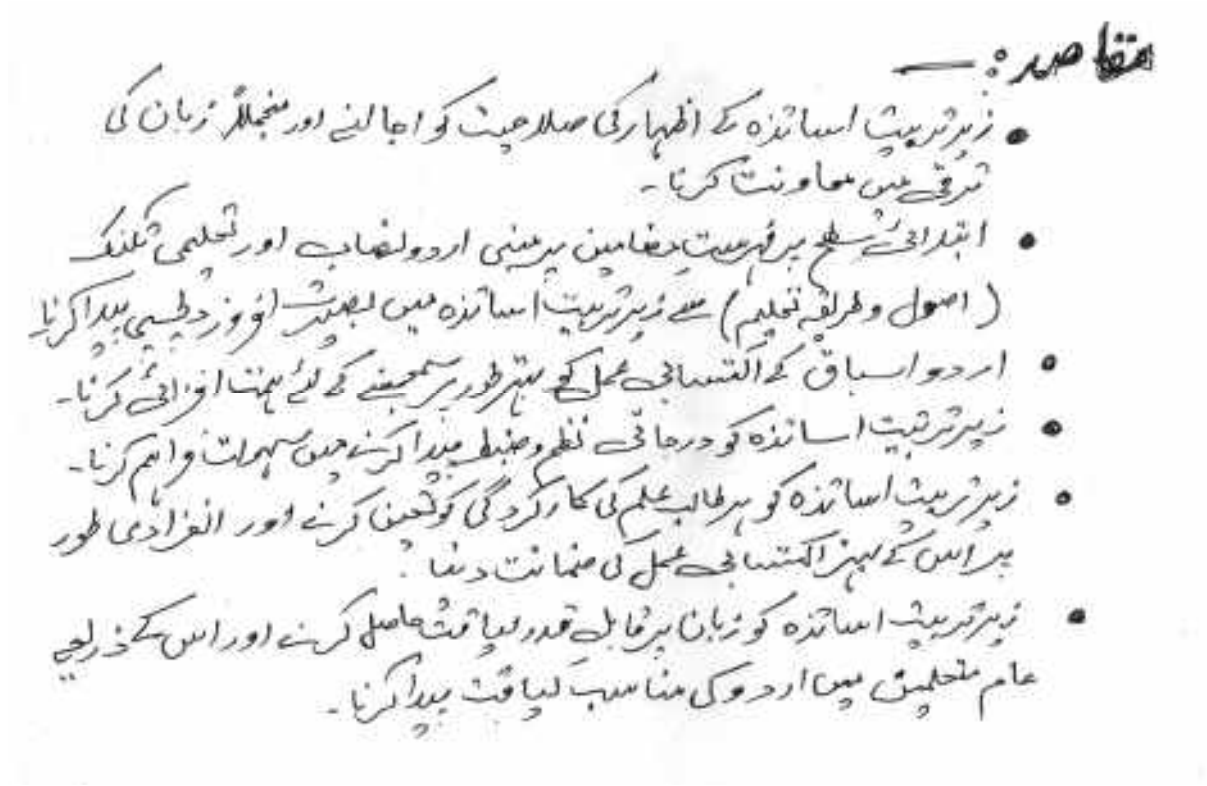 مقاصد :—
• زیر تربیت اساتذہ کے اظہار کی صلاحیت کو اجالنے اور منجملہ زبان کی
ترقی میں معاونت کرنا۔
• ابتدائی سطح پر فہرست مضامین پر مبنی اردو نصاب اور تعلیمی تکنک
(اصول و طریقہ تعلیم) سے زیر تربیت اساتذہ میں بصیرت افروز دلچسپی پیدا کرنا
• اردو اسباق کے اکتسابی عمل کے بہتر طور پر سمجھنے کے لئے ہمت افزائی کرنا۔
• زیر تربیت اساتذہ کو درجاتی نظم و ضبط پیدا کرنے میں سہولت فراہم کرنا۔
• زیر تربیت اساتذہ کو ہر طالب علم کی کارکردگی کو تعین کرنے اور انفرادی طور
پر اس کے بہتر اکتسابی عمل کی ضمانت دینا
• زیر تربیت اساتذہ کو زبان پر قابل قدر لیاقت حاصل کرنے اور اس کے ذریعے
عام متعلمین میں اردو کی مناسب لیاقت پیدا کرنا۔